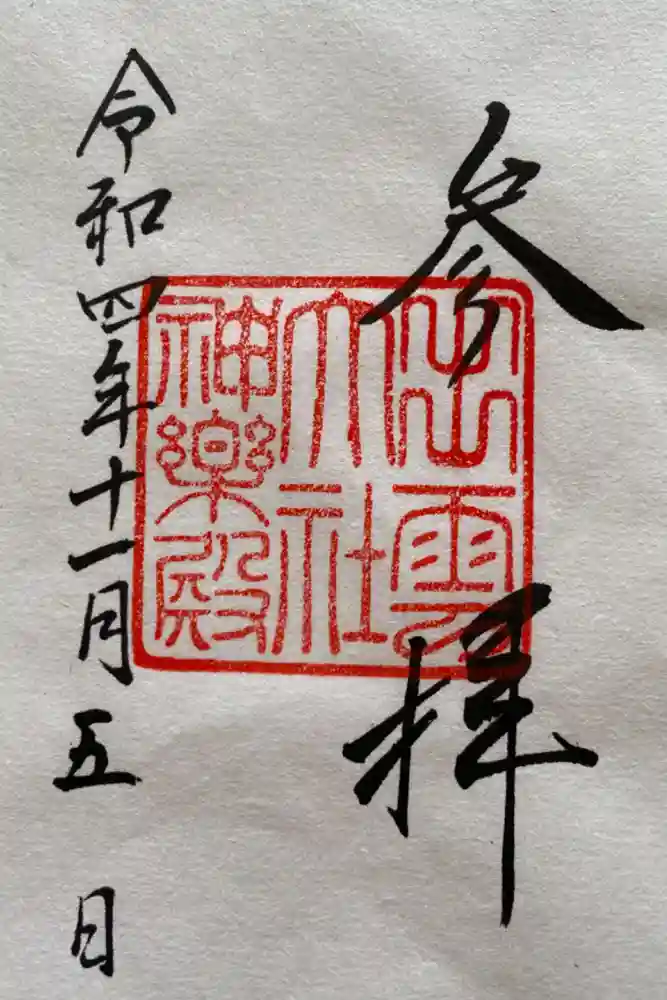 参拝
出雲大社神楽殿
令和四年十一月五日